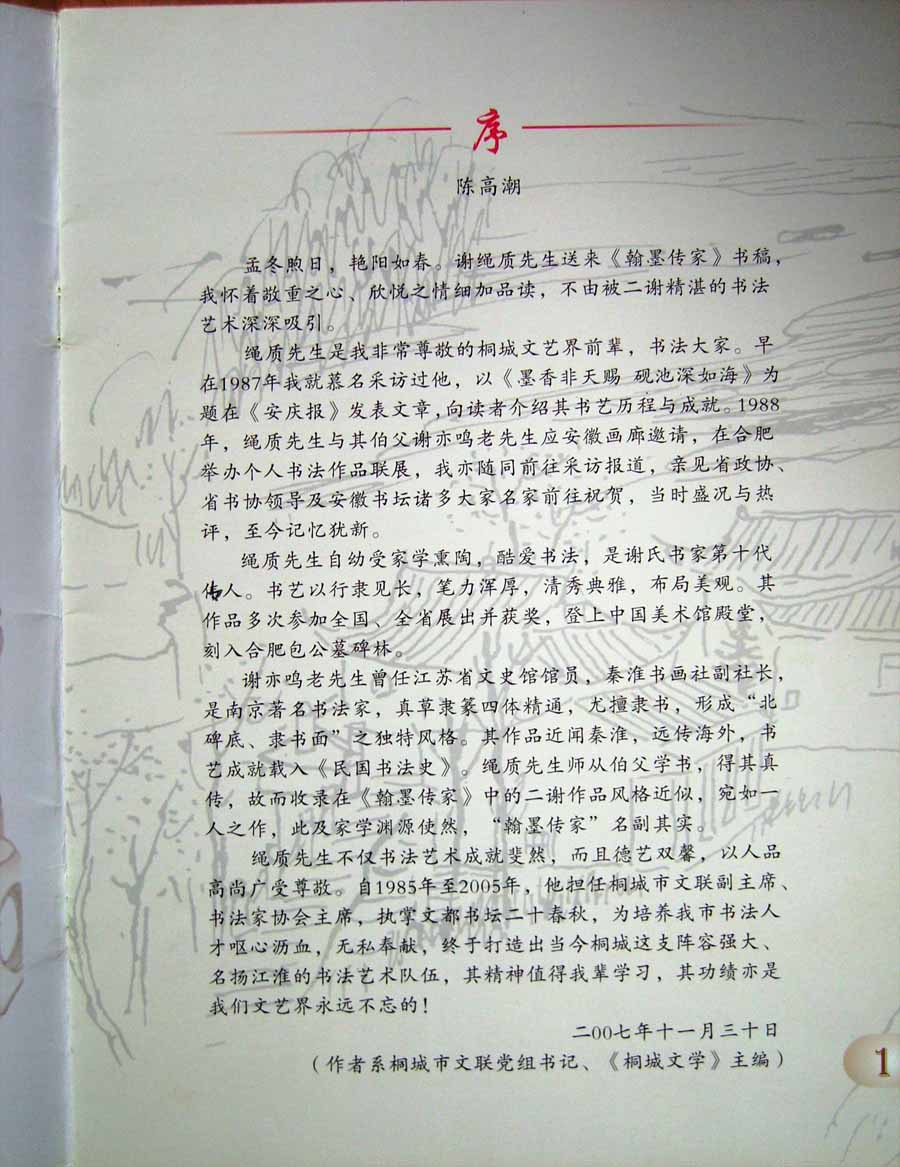 序
陈高潮
孟冬煦日，艳阳如春。谢绳质先生送来《翰墨传家》书稿，
我怀着敬重之心、欣悦之情细加品读，不由被二谢精湛的书法
艺术深深吸引。
绳质先生是我非常尊敬的桐城文艺界前辈，书法大家。早
在1987年我就慕名采访过他，以《墨香非天赐 砚池深如海》为
题在《安庆报》发表文章，向读者介绍其书艺历程与成就。1988
年，绳质先生与其伯父谢亦鸣老先生应安徽画廊邀请，在合肥
举办个人书法作品联展，我亦随同前往采访报道，亲见省政协、
省书协领导及安徽书坛诸多大家名家前往祝贺，当时盛况与热
评，至今记忆犹新。
绳质先生自幼受家学熏陶，酷爱书法，是谢氏书家第十代
传人。书艺以行隶见长，笔力浑厚，清秀典雅，布局美观。其
作品多次参加全国、全省展出并获奖，登上中国美术馆殿堂，
刻入合肥包公墓碑林。
谢亦鸣老先生曾任江苏省文史馆馆员，秦淮书画社副社长，
是南京著名书法家，真草隶篆四体精通，尤擅隶书，形成“北
碑底、隶书面”之独特风格。其作品近闻秦淮，远传海外，书
艺成就载入《民国书法史》。绳质先生师从伯父学书，得其真
传，故而收录在《翰墨传家》中的二谢作品风格近似，宛如一
人之作，此及家学渊源使然，“翰墨传家”名副其实。
绳质先生不仅书法艺术成就斐然，而且德艺双馨，以人品
高尚广受尊敬。自1985年至2005年，他担任桐城市文联副主席、
书法家协会主席，执掌文都书坛二十春秋，为培养我市书法人
才呕心沥血，无私奉献，终于打造出当今桐城这支阵容强大、
名扬江淮的书法艺术队伍，其精神值得我辈学习，其功绩亦是
我们文艺界永远不忘的！
二00七年十一月三十日
（作者系桐城市文联党组书记、《桐城文学》主编）
1